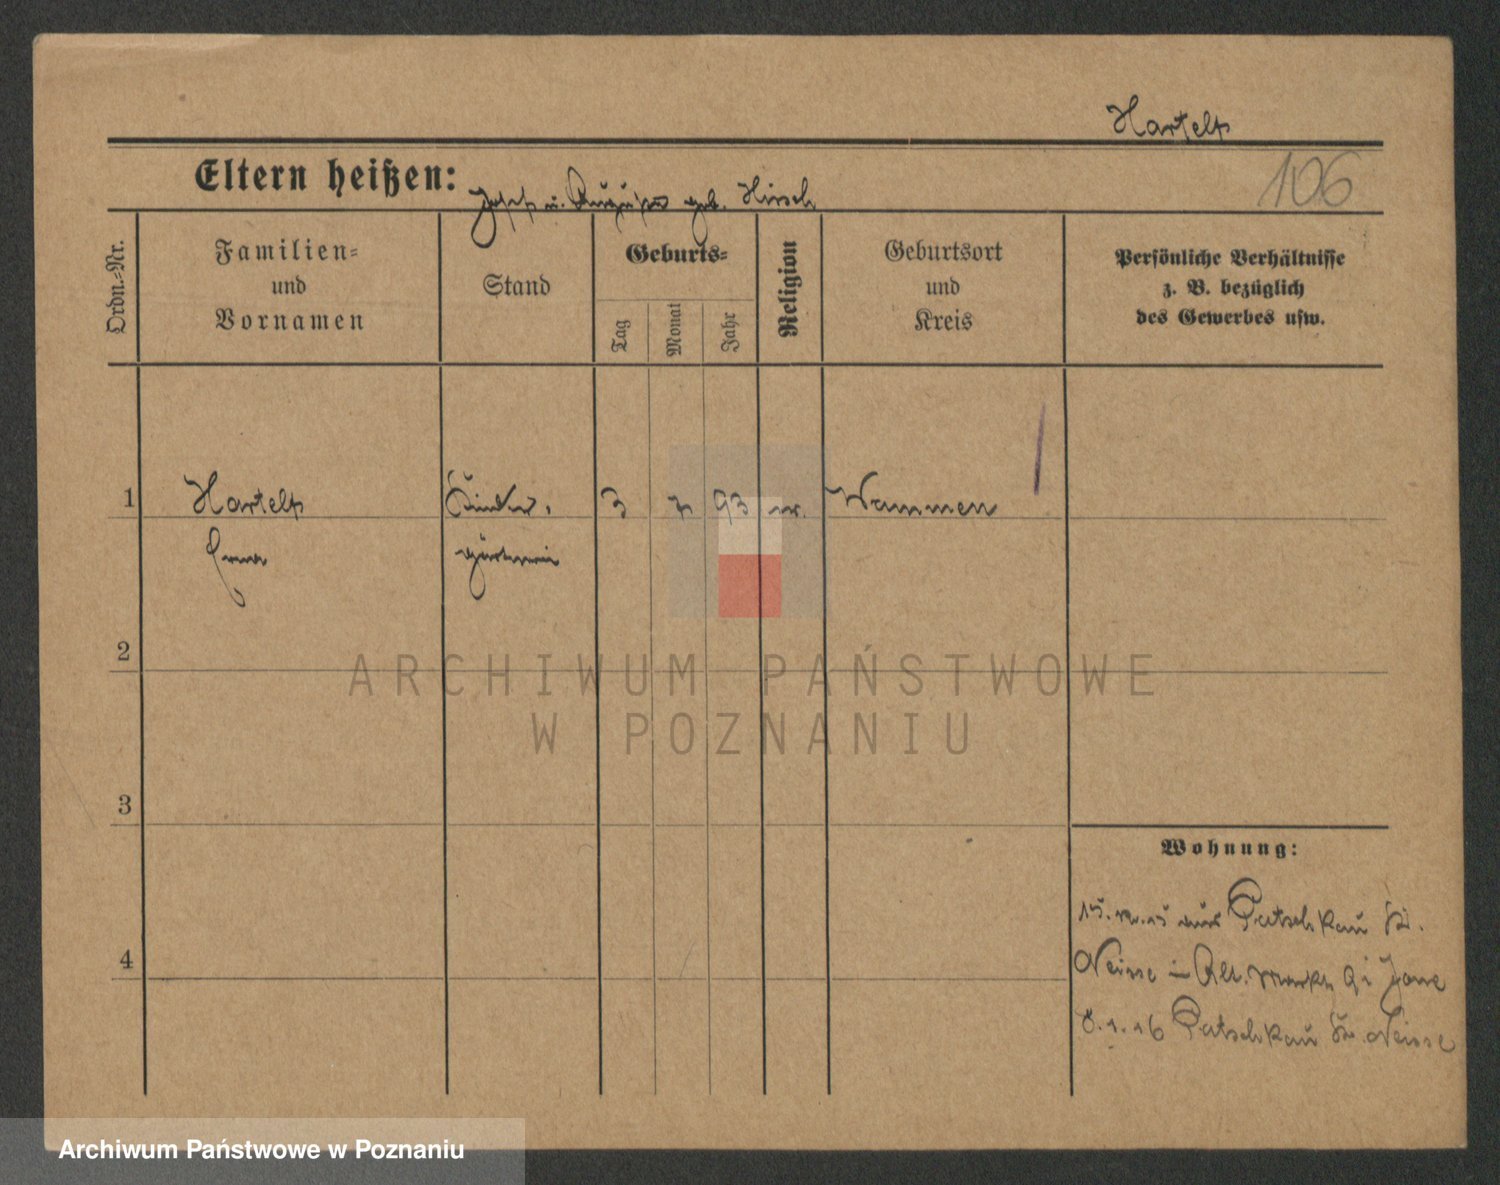 Hartelt
Eltern heißen: Josef u. Auguste geb. Hirsch
106
Ordn.-Nr.
Familien-
und
Vornamen
Stand
Geburts-
Tag
Monat
Jahr
Religion
Geburtsort
und
Kreis
Persönliche Verhältnisse
z. B. bezüglich
des Gewerbes usw.
1 Hartelt Kinder- 3 7 93 Wammen
Erna gärtnerin
2
3
4
Wohnung:
aus Patschkau Kr.
Neisse in Alt. Markt 9 i
8.1.16 Patschkau Kr. Neisse
ARCHIWUM PAŃSTWOWE
W POZNANIU
Archiwum Państwowe w Poznaniu